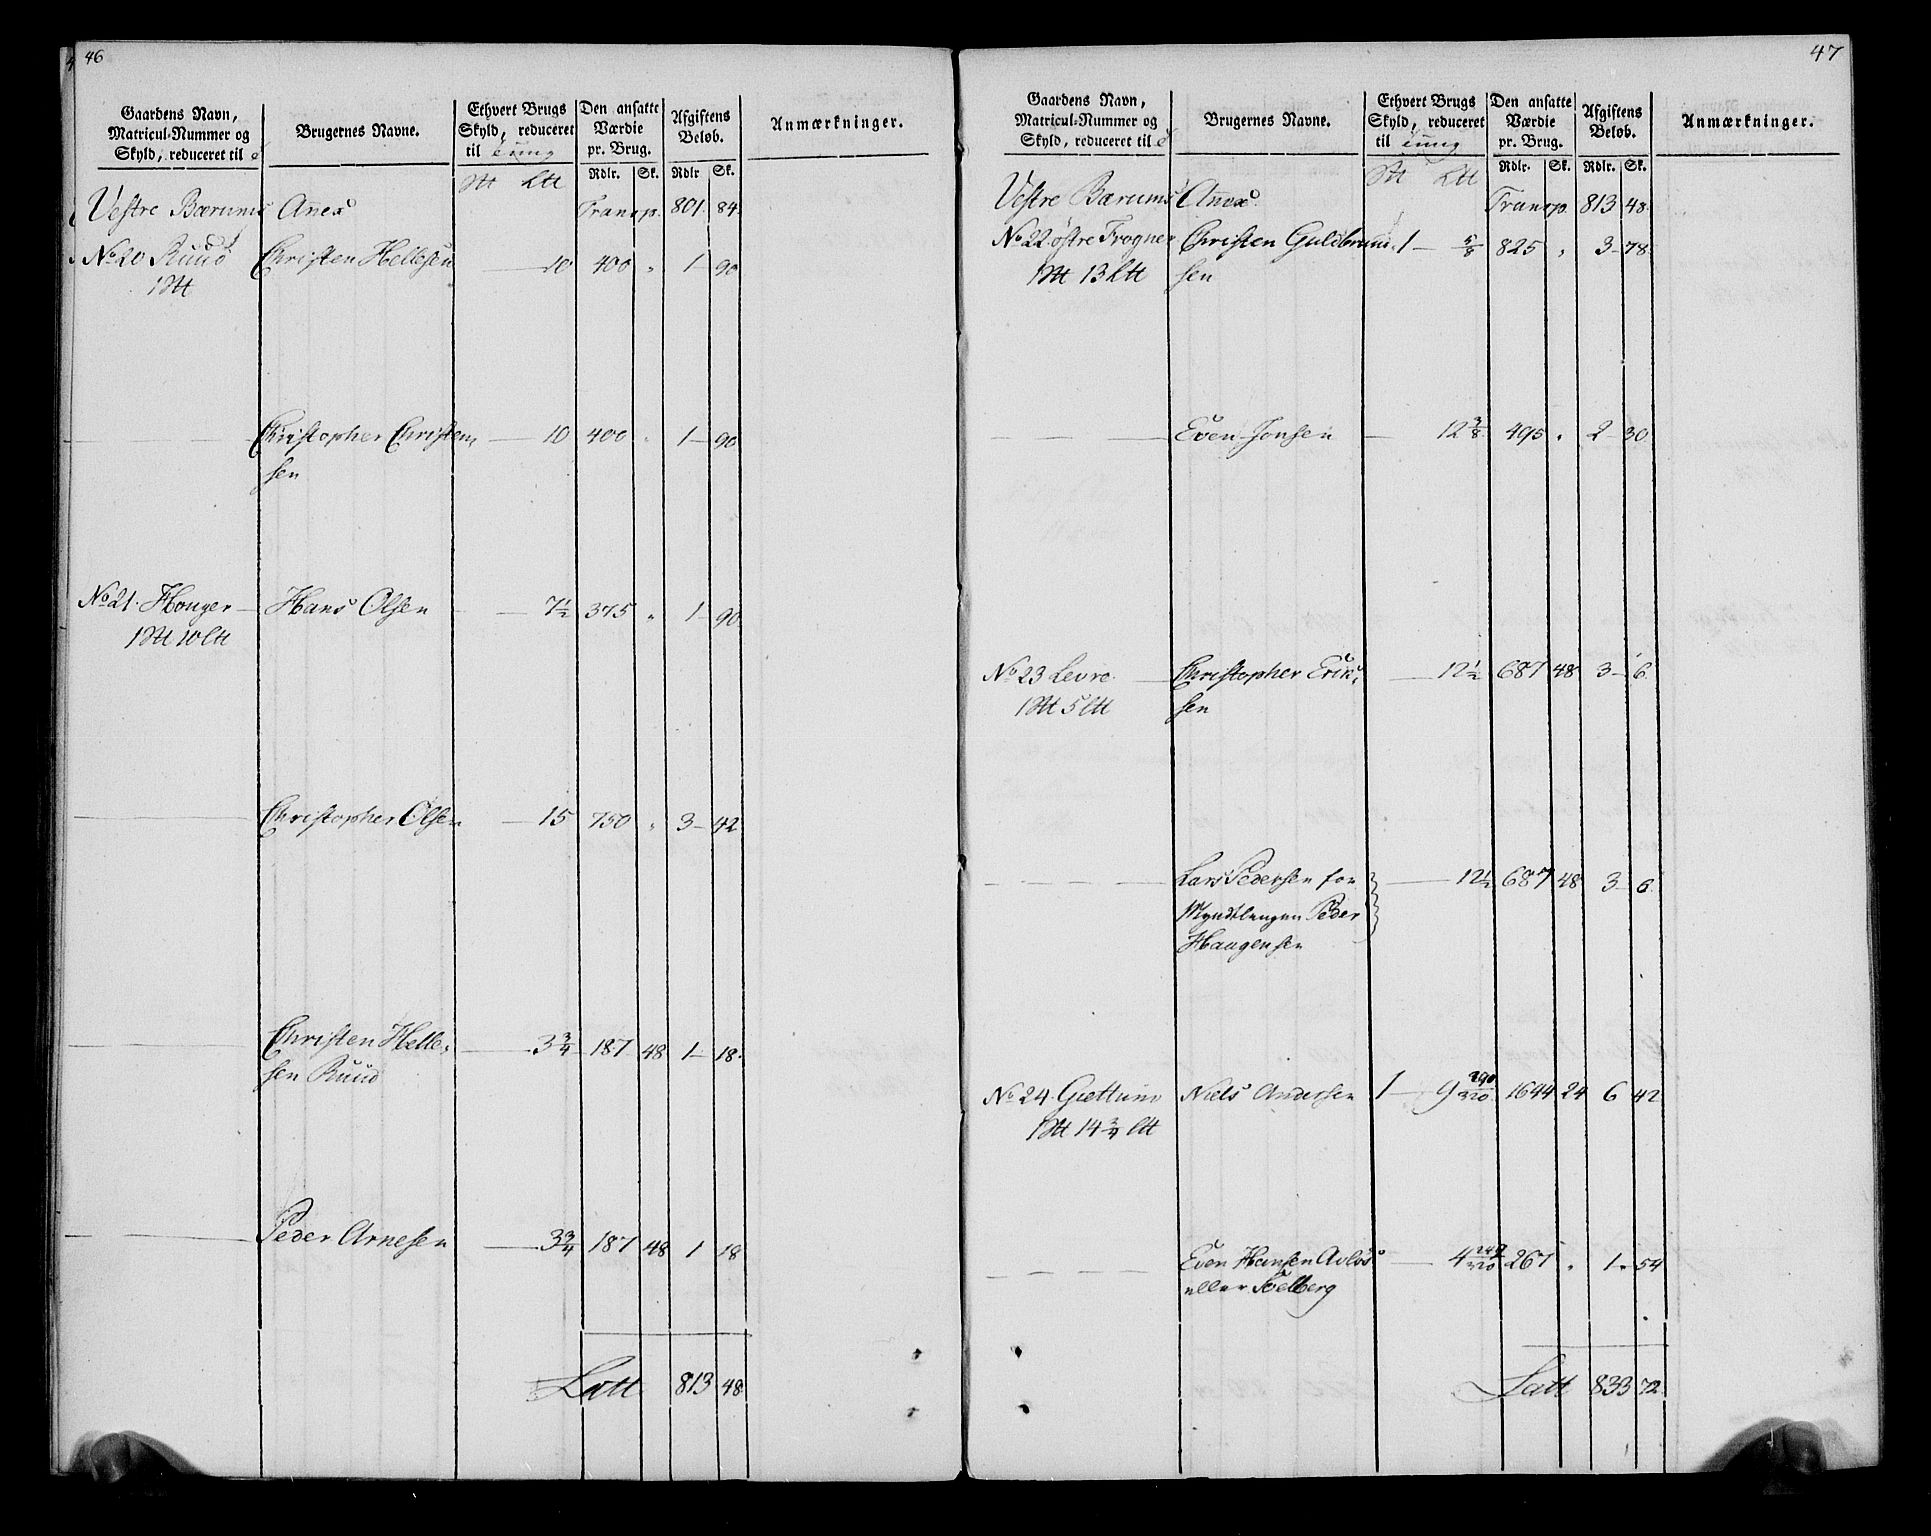 46
Gaardens Navn, Matricul-Nummer og Skyld, reduceret til
Brugernes Navne.
Ethvert Brugs Skyld, reduceret til Tung
Den ansatte Værdie pr. Brug.
Afgiftens Beløb.
Anmærkninger.
Rdlr. Sk. Rdlr Sk.
Vestre Bærums Anex Transp. 801. 84.
No 20 Ruud Christen Hellesen 10 400 " 1 90
Christopher Christen, 10 400 " 1 90
sen
No 21. Honger Hans Olsen 7½ 375 " 1 90
Christopher Olsen 15 750 " 3 42
Christen Helle, 3¾ 187 48 1 18.
sen Ruud
Peder Arnesen 3¾ 187 48 1 18
Latt 813 48
47
Gaardens Navn, Matricul-Nummer og Skyld, reduceret til
Brugernes Navne.
Ethvert Brugs Skyld, reduceret til Tung
Den ansatte Værdie pr. Brug.
Afgiftens Beløb.
Anmærkninger.
Rdlr. Sk. Rdlr. Sk.
Vestre Bærums Annex Transp. 813 48.
No 22 østre Frogner Christen Guldbrand, 1 5/8 825 " 3 78.
sen
Even Jonsen 12 3/8 495 " 2 30
No 23 Levre Christopher Erik, 12½ 687 48 3 6
sen
Lars Pedersen for 12½ 687 48 3 6
Myndtlingen Peder
Haagensen
No 24. Giettum Niels Andersen 1 9 290/320 1644 24 6 42
Even Hansen Avløs 4 267 " 1 54
eller Solberg
Latt 833 72